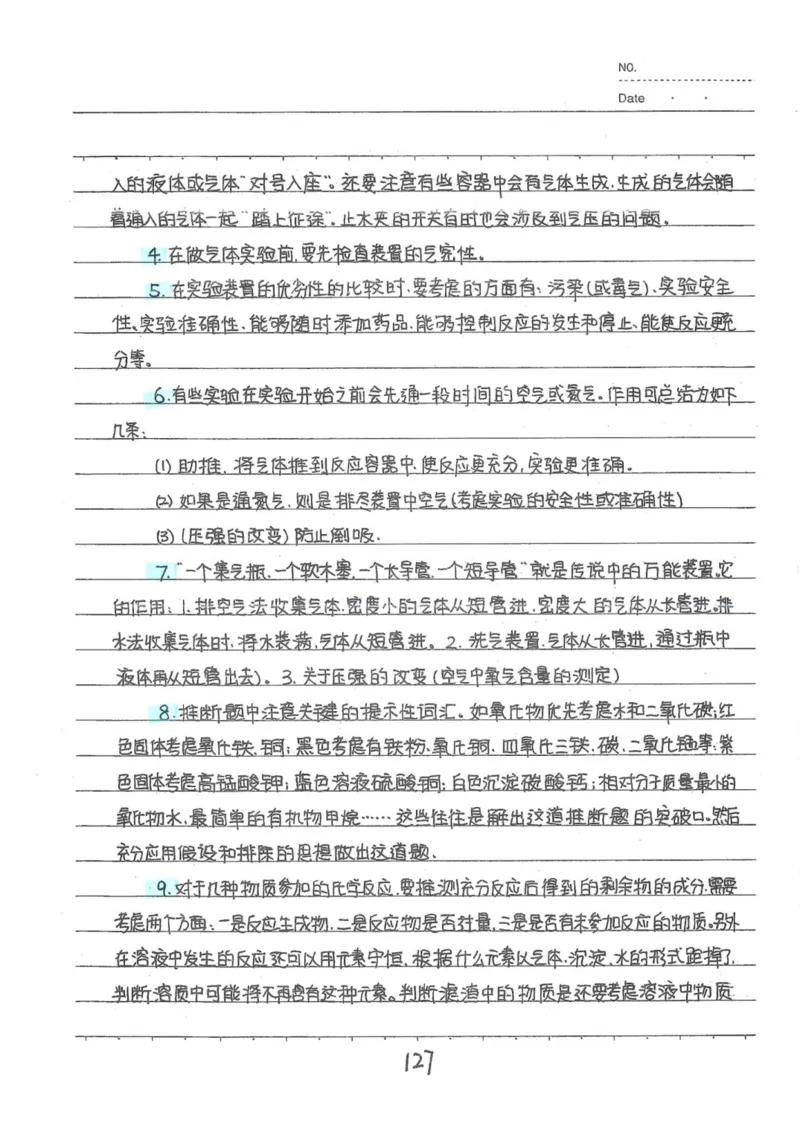 NO.
Date
入的液体或气体“对号入座”。还要注意有些容器中会有气体生成,生成的气体会随
着通入的气体一起“踏上征途”。止水夹的开关有时也会涉及到气压的问题。
4. 在做气体实验前,要先检查装置的气密性。
5. 在实验装置的优劣性的比较时,要考虑的方面有:污染(或毒气)、实验安全
性、实验准确性、能够随时添加药品、能够控制反应的发生和停止、能使反应更充
分等。
6. 有些实验在实验开始之前会先通一段时间的空气或氮气。作用可总结为如下
几条:
(1) 助推,将气体推到反应容器中,使反应更充分,实验更准确。
(2) 如果是通氮气,则是排尽装置中空气(考虑实验的安全性或准确性)
(3) (压强的改变) 防止倒吸.
7. “一个集气瓶,一个软木塞,一个长导管,一个短导管”就是传说中的万能装置。它
的作用: 1. 排空气法收集气体,密度小的气体从短管进,密度大的气体从长管进。排
水法收集气体时,将水装满,气体从短管进。 2. 洗气装置,气体从长管进,通过瓶中
液体再从短管出去)。 3. 关于压强的改变(空气中氧气含量的测定)
8. 推断题中注意关键的提示性词汇。如氧化物优先考虑水和二氧化碳;红
色固体考虑氧化铁、铜;黑色考虑有铁粉、氧化铜、四氧化三铁、碳、二氧化锰等;紫
色固体考虑高锰酸钾;蓝色溶液硫酸铜;白色沉淀碳酸钙;相对分子质量最小的
氧化物水,最简单的有机物甲烷……这些往往是解出这道推断题的突破口。然后
充分应用假设和排除的思想做出这道题.
9. 对于几种物质参加的化学反应,要推测充分反应后得到的剩余物的成分,需要
考虑两个方面:一是反应生成物,二是反应物是否过量,三是是否有未参加反应的物质。另外
在溶液中发生的反应还可以用元素守恒,根据什么元素以气体、沉淀、水的形式跑掉了,
判断溶质中可能将不再含有这种元素。判断滤渣中的物质是还要考虑溶液中物质
127